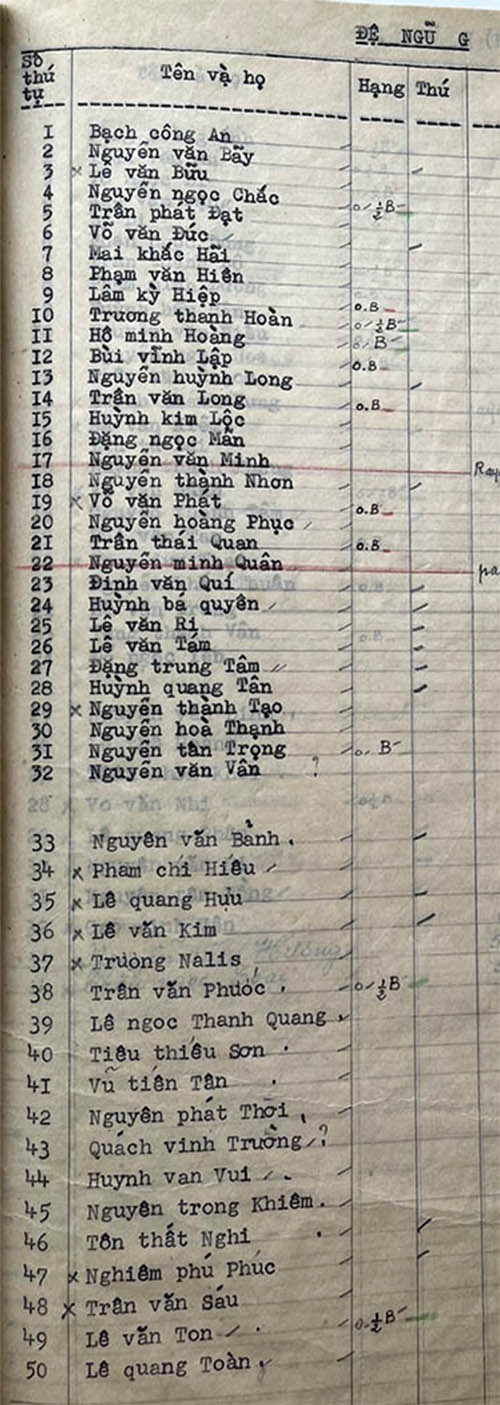 ĐỆ NGŨ G
Số thứ tự Tên và họ Hạng Thứ
1 Bạch công An
2 Nguyễn văn Bẫy
3 × Lê văn Bữu
4 Nguyễn ngọc Chắc
5 Trần phát Đạt 0/½B
6 Võ văn Đức
7 Mai khắc Hãi
8 Phạm văn Hiền
9 Lâm kỳ Hiệp 0.B
10 Trương thanh Hoàn 0/½B
11 Hồ minh Hoàng 0/B
12 Bùi vĩnh Lập 0.B
13 Nguyễn huỳnh Long
14 Trần văn Long 0.B
15 Huỳnh kim Lộc
16 Đặng ngọc Mẫn
17 Nguyễn văn Minh
18 Nguyễn thành Nhơn
19 × Võ văn Phát 0.B
20 Nguyễn hoàng Phục
21 Trần thái Quan 0.B
22 Nguyễn minh Quân
23 Đinh văn Quí
24 Huỳnh bá quyên
25 Lê văn Ri
26 Lê văn Tám
27 Đặng trung Tâm
28 Huỳnh quang Tân
29 × Nguyễn thành Tạo
30 Nguyễn hoà Thạnh
31 Nguyễn tấn Trọng 0. B
32 Nguyễn văn Vân ?
33 Nguyên văn Bảnh
34 × Pham chí Hiếu
35 × Lê quang Hựu
36 × Lê văn Kim
37 × Trương Nalis
38 Trân văn Phước 0/½B
39 Lê ngoc Thanh Quang
40 Tiêu thiếu Sơn
41 Vũ tiến Tân
42 Nguyên phát Thơi
43 Quách vinh Trường ?
44 Huynh van Vui
45 Nguyên trong Khiêm
46 Tôn thất Nghi
47 × Nghiêm phú Phúc
48 × Trân văn Sáu
49 Lê văn Ton 0.½B
50 Lê quang Toàn